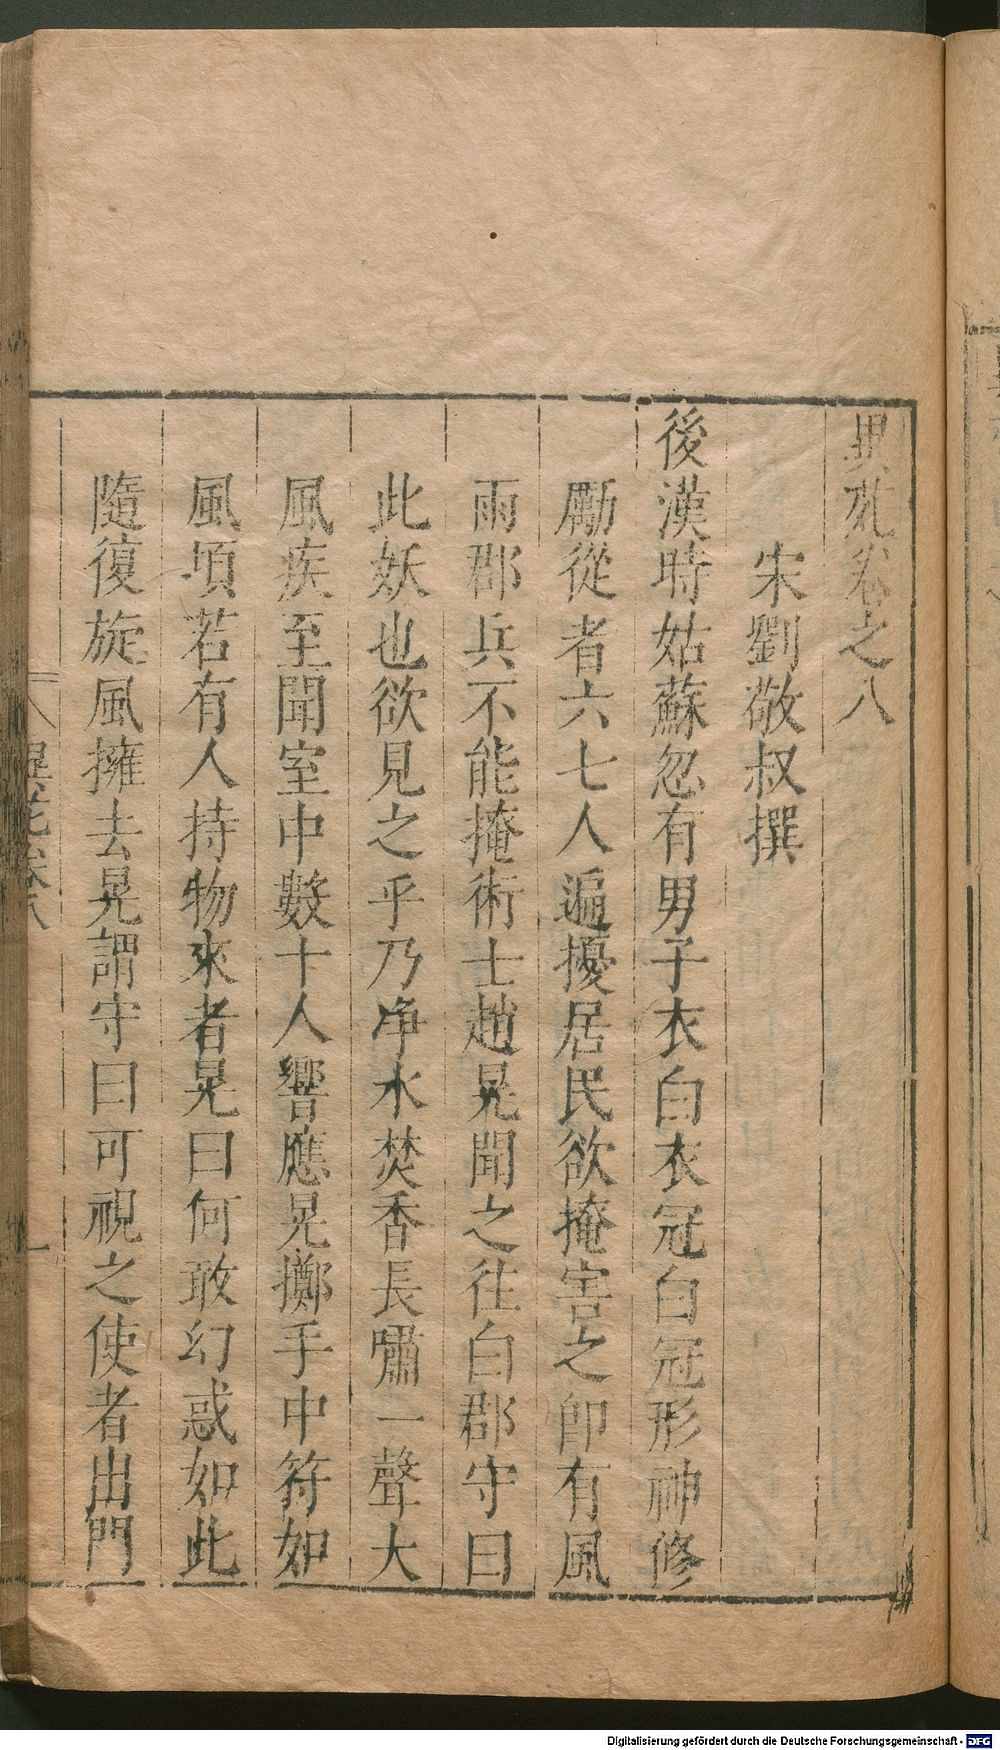 異苑卷之八
宋劉敬叔撰
後漢時姑蘇忽有男子衣白衣冠白冠形神修
勵從者六七人遍擾居民欲掩害之卽有風
雨郡兵不能掩術士趙晃聞之往白郡守曰
此妖也欲見之乎乃净水焚香長嘯一聲大
風疾至聞室中數十人響應晃擲手中符如
風頃若有人持物來者晃曰何敢幻惑如此
隨復旋風擁去晃謂守曰可視之使者出門
異苑卷八
一
Digitalisierung gefördert durch die Deutsche Forschungsgemeinschaft - DFG